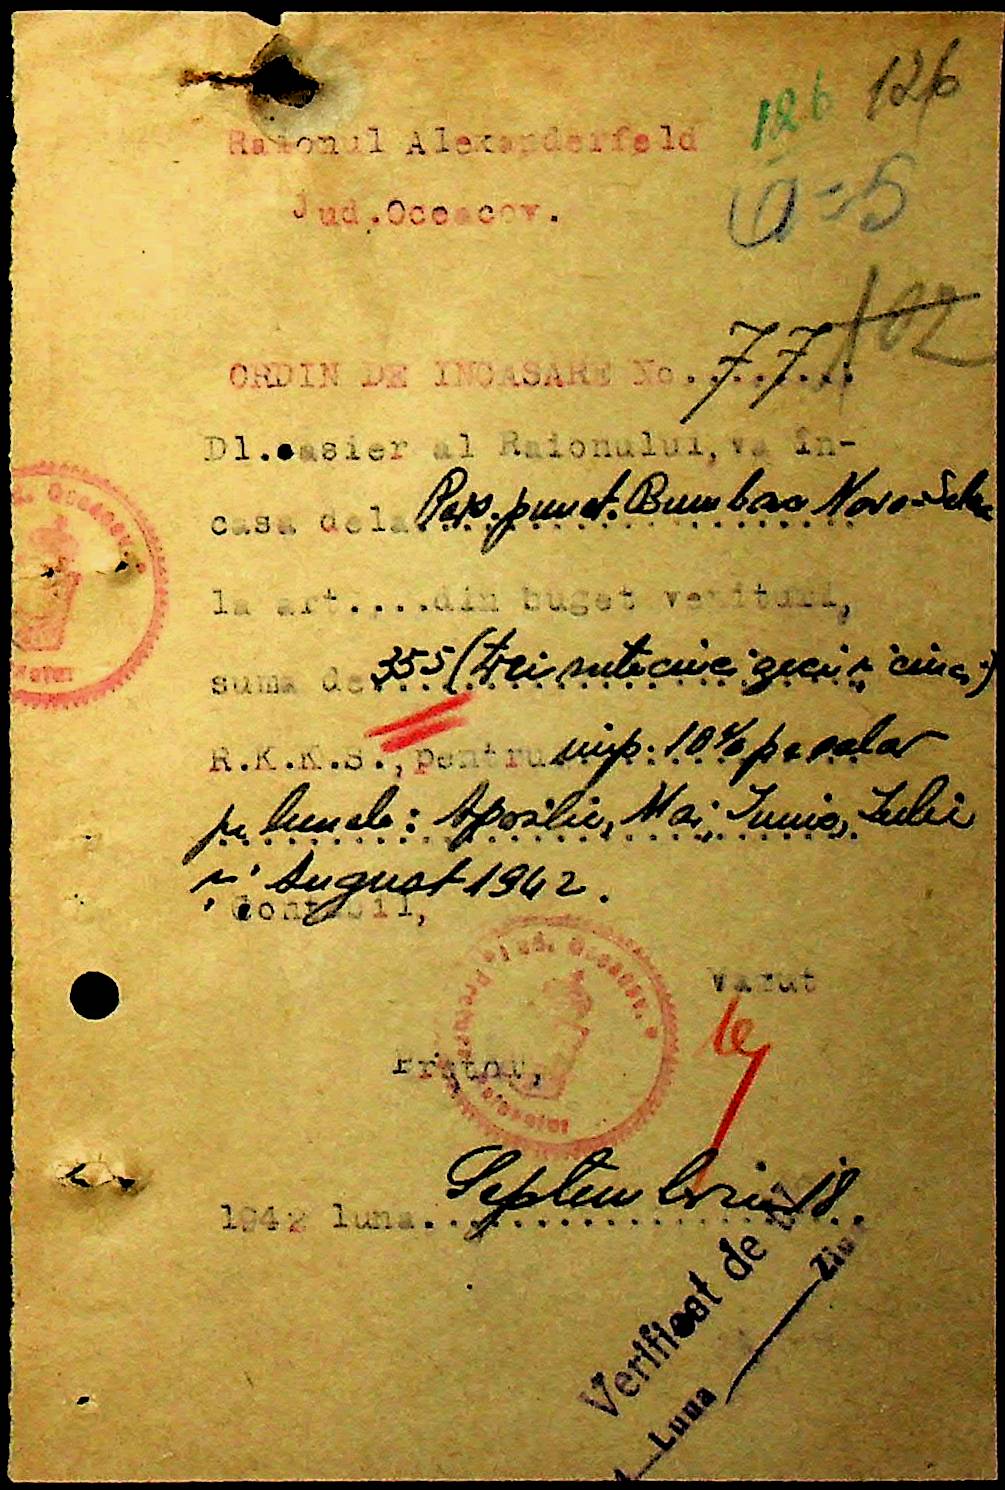 126 126
a=5
102
Raionul Alexanderfeld
Jud.Oceacov.
ORDIN DE INCASARE No. 77
Dl.casier al Raionului, va în-
casa dela Pers. punct. Bumbac Novo-
la art....din buget venituri,
suma de 355 (trei sute cinci zeci și cinci)
R.K.K.S., pentru imp. 10% pe salar
pe lunele: Aprilie, Mai, Iunie, Iulie
și August 1942.
Contabil,
Vazut
Pretor,
1942 luna Septembrie 18
Verificat de
Luna Ziua